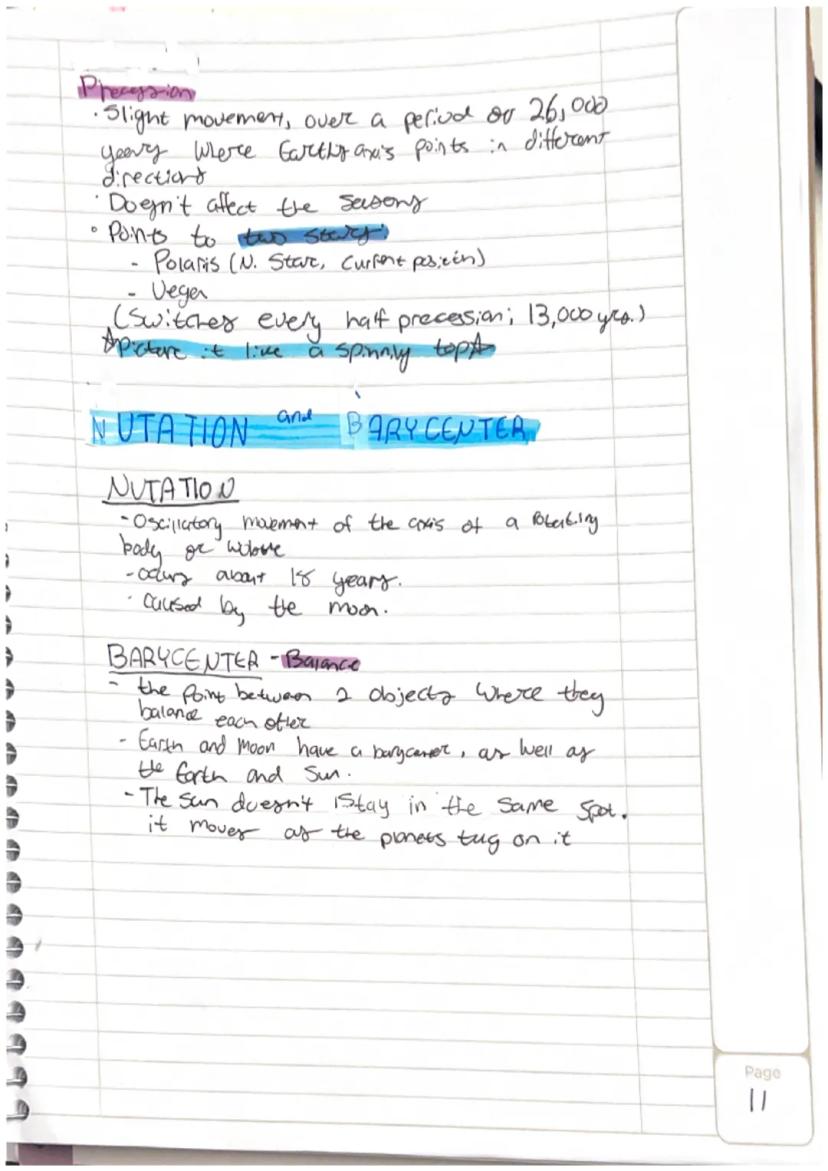 Precession
• Slight movement, over a period of 26,000
years where Earth's axis points in different
directions
• Doesn't affect the seasons
• Points to two stars
- Polaris (N. Star, current position)
- Vega
(Switches every half precession; 13,000 yrs.)
☆picture it like a spinnily top☆
NUTATION and BARYCENTER
NUTATION
- Oscillatory movement of the axis of a rotating
body or wobble
- occurs about 18 years.
• caused by the moon.
BARYCENTER - Balance
- the point between 2 objects where they
balance each other
- Earth and Moon have a barycenter, as well as
the Earth and Sun.
- The sun doesn't stay in the same spot.
it moves as the planets tug on it
Page
11